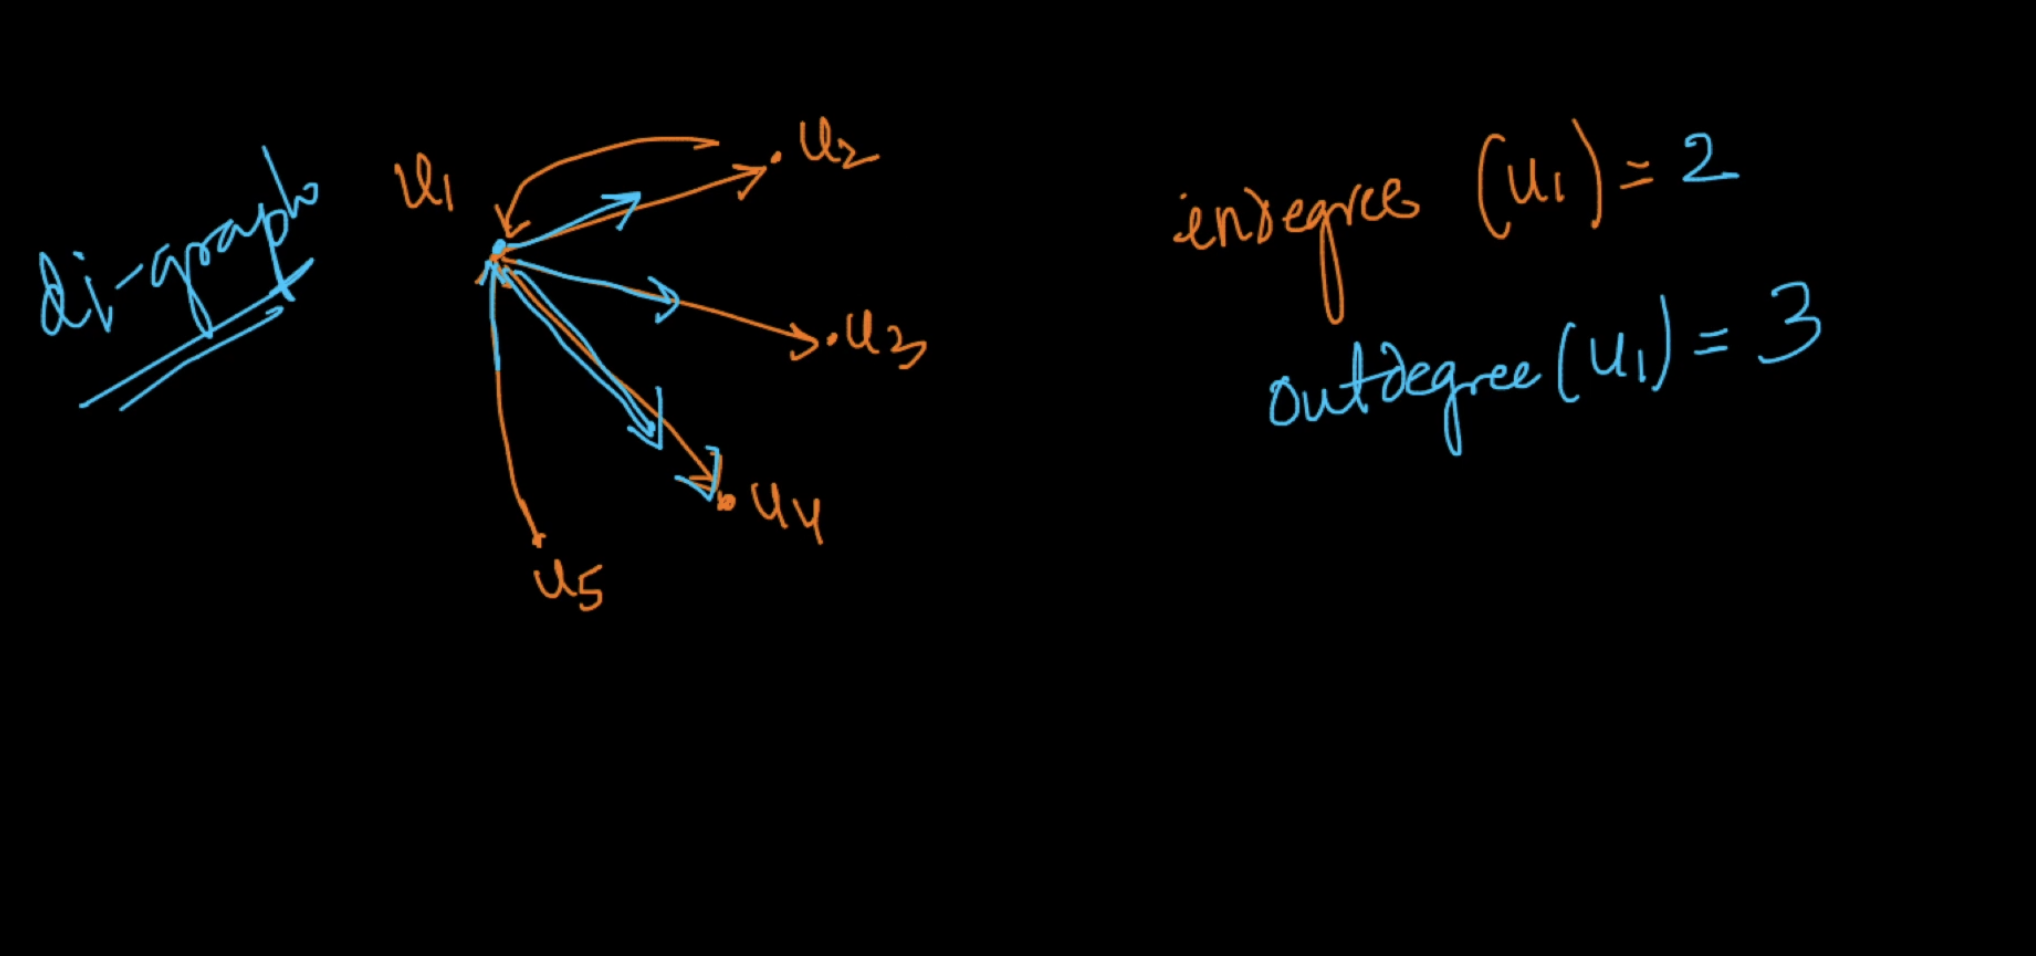 di-graph
u1
u2
u3
u4
u5
indegree (u1) = 2
outdegree (u1) = 3